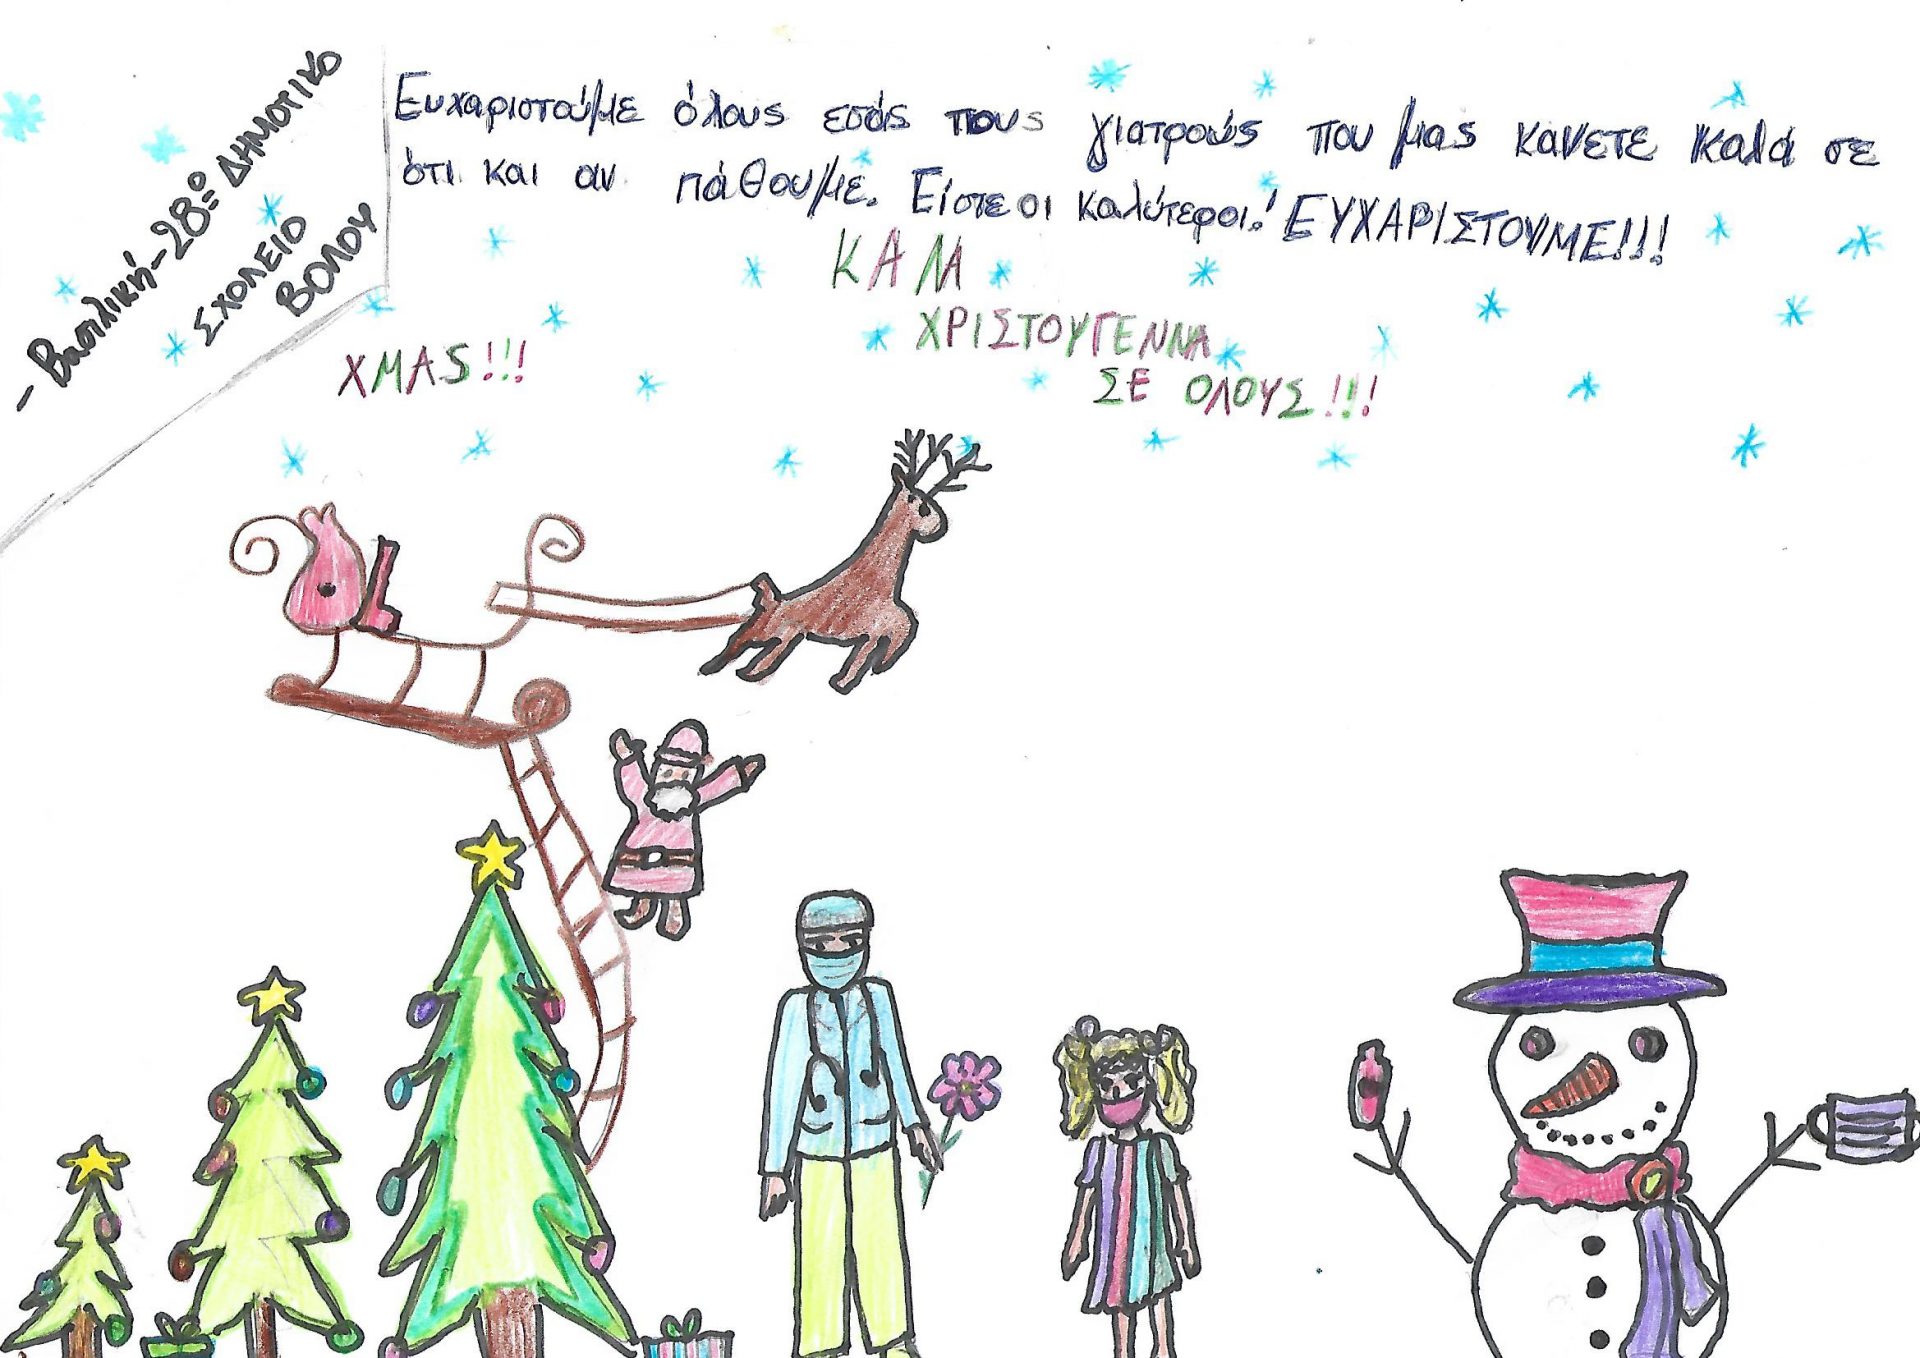 - Βασιλική - 28º ΔΗΜΟΤΙΚΟ
ΣΧΟΛΕΙΟ
ΒΟΛΟΥ
Ευχαριστούμε όλους εσάς τους γιατρούς που μας κανετε καλά σε
ότι και αν πάθουμε. Είστε οι καλύτεροι! ΕΥΧΑΡΙΣΤΟΥΜΕ!!!
ΚΑΛΑ
ΧΡΙΣΤΟΥΓΕΝΝΑ
ΣΕ ΟΛΟΥΣ!!!
XMAS!!!